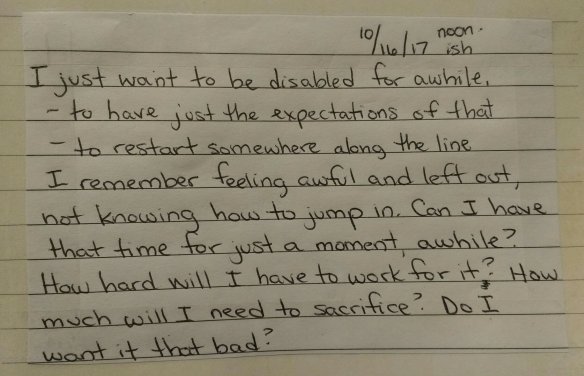 10/16/17 noon-
ish
I just want to be disabled for awhile,
- to have just the expectations of that
- to restart somewhere along the line
I remember feeling awful and left out,
not knowing how to jump in. Can I have
that time for just a moment, awhile?
How hard will I have to work for it? How
much will I need to sacrifice? Do I
want it that bad?